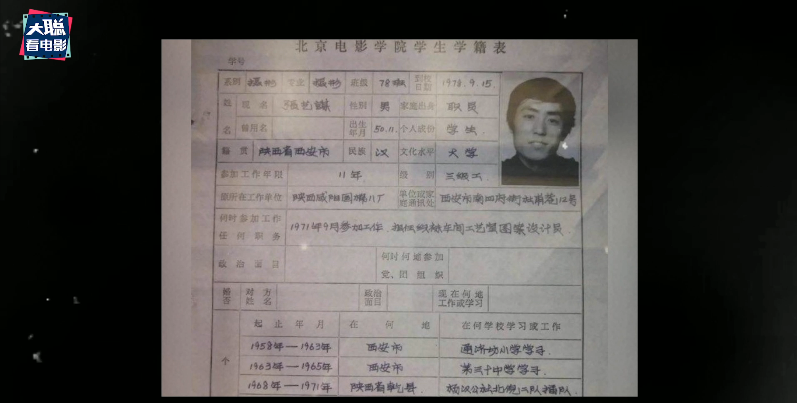 大聪
看电影
北京电影学院学生学籍表
学号
系别 摄影 专业 摄影 班级 78班 到校日期 1978.9.15
姓名 现名 张艺谋 性别 男 家庭出身 职员
曾用名 出生年月 50.11 个人成份 学生
籍贯 陕西省西安市 民族 汉 文化水平 大学
参加工作年限 11年 级别 三级工
原所在工作单位 陕西咸阳国棉八厂 单位或家庭通讯处 西安市
何时参加工作任何职务 1971年9月参加工作 担任 车间工艺室图案设计员
政治面目 何时何地参加党、团组织
婚否 对方姓名 政治面目 现在何地工作或学习
个
起止年月 在何地 在何学校学习或工作
1958年—1963年 西安市 小学学习.
1963年—1965年 西安市 第三十中学学习.
1968年—1971年 陕西省乾县 队插队.